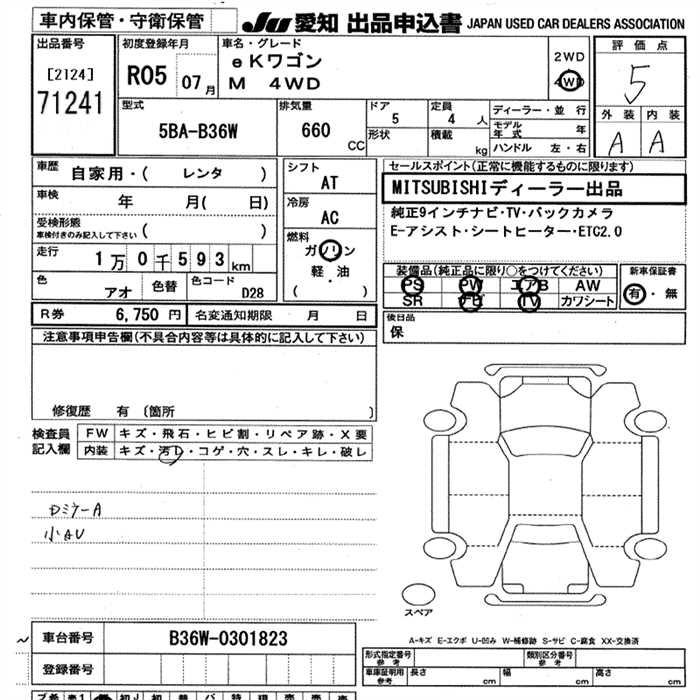 車内保管・守衛保管
JU 愛知 出品申込書 JAPAN USED CAR DEALERS ASSOCIATION
出品番号
[2124]
71241
初度登録年月
R05 07月
車名・グレード
eKワゴン
M 4WD
2WD
4WD
評価点
5
外装 内装
A A
型式
5BA-B36W
排気量
660 CC
ドア
5
形状
定員
4 人
積載
kg
ディーラー・並行
モデル年式 年
ハンドル 左・右
車歴 自家用・( レンタ )
車検 年 月( 日)
受検形態
車検付きのみ記入して下さい ( )
走行 1万0千593km
色 アオ 色替 色コード D28
シフト
AT
冷房
AC
燃料
ガソリン
軽・油
( )
セールスポイント(正常に機能するものに限ります)
MITSUBISHIディーラー出品
純正9インチナビ・TV・バックカメラ
E-アシスト・シートヒーター・ETC2.0
装備品(純正品に限り○をつけてください)
PS PW エアB AW
SR ナビ TV カワシート
新車保証書
有・無
R券 6,750円 名変通知期限 月 日
後日品
保
注意事項申告欄(不具合内容等は具体的に記入して下さい)
修復歴 有 〔箇所 〕
検査員記入欄
FW キズ・飛石・ヒビ割・リペア跡・X要
内装 キズ・汚レ・コゲ・穴・スレ・キレ・破レ
小AU
スペア
A-キズ E-エクボ U-凹み W-補修跡 S-サビ C-腐食 XX-交換済
〜 車台番号 B36W-0301823
登録番号
形式指定番号 参考 類別区分番号 参考
車庫証明用 参考 長さ cm 幅 cm 高さ cm